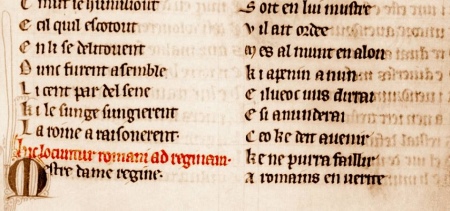 E cil qui escotout
E n li se delitouent
D unc furent asemble
L i cent par del sene
K i le sunge sungierent
L a roine a raisonerent
Hic locuntur romani ad reginam.
M estre dame regine.
S oit en lui mustre
V il ait ordee
M es al munt en alout
K i apenin a nun
E ilueoc uus dirrai
E si amunderai
C eo ke deit auenir
K e ne purra faillir
A romains en uerite